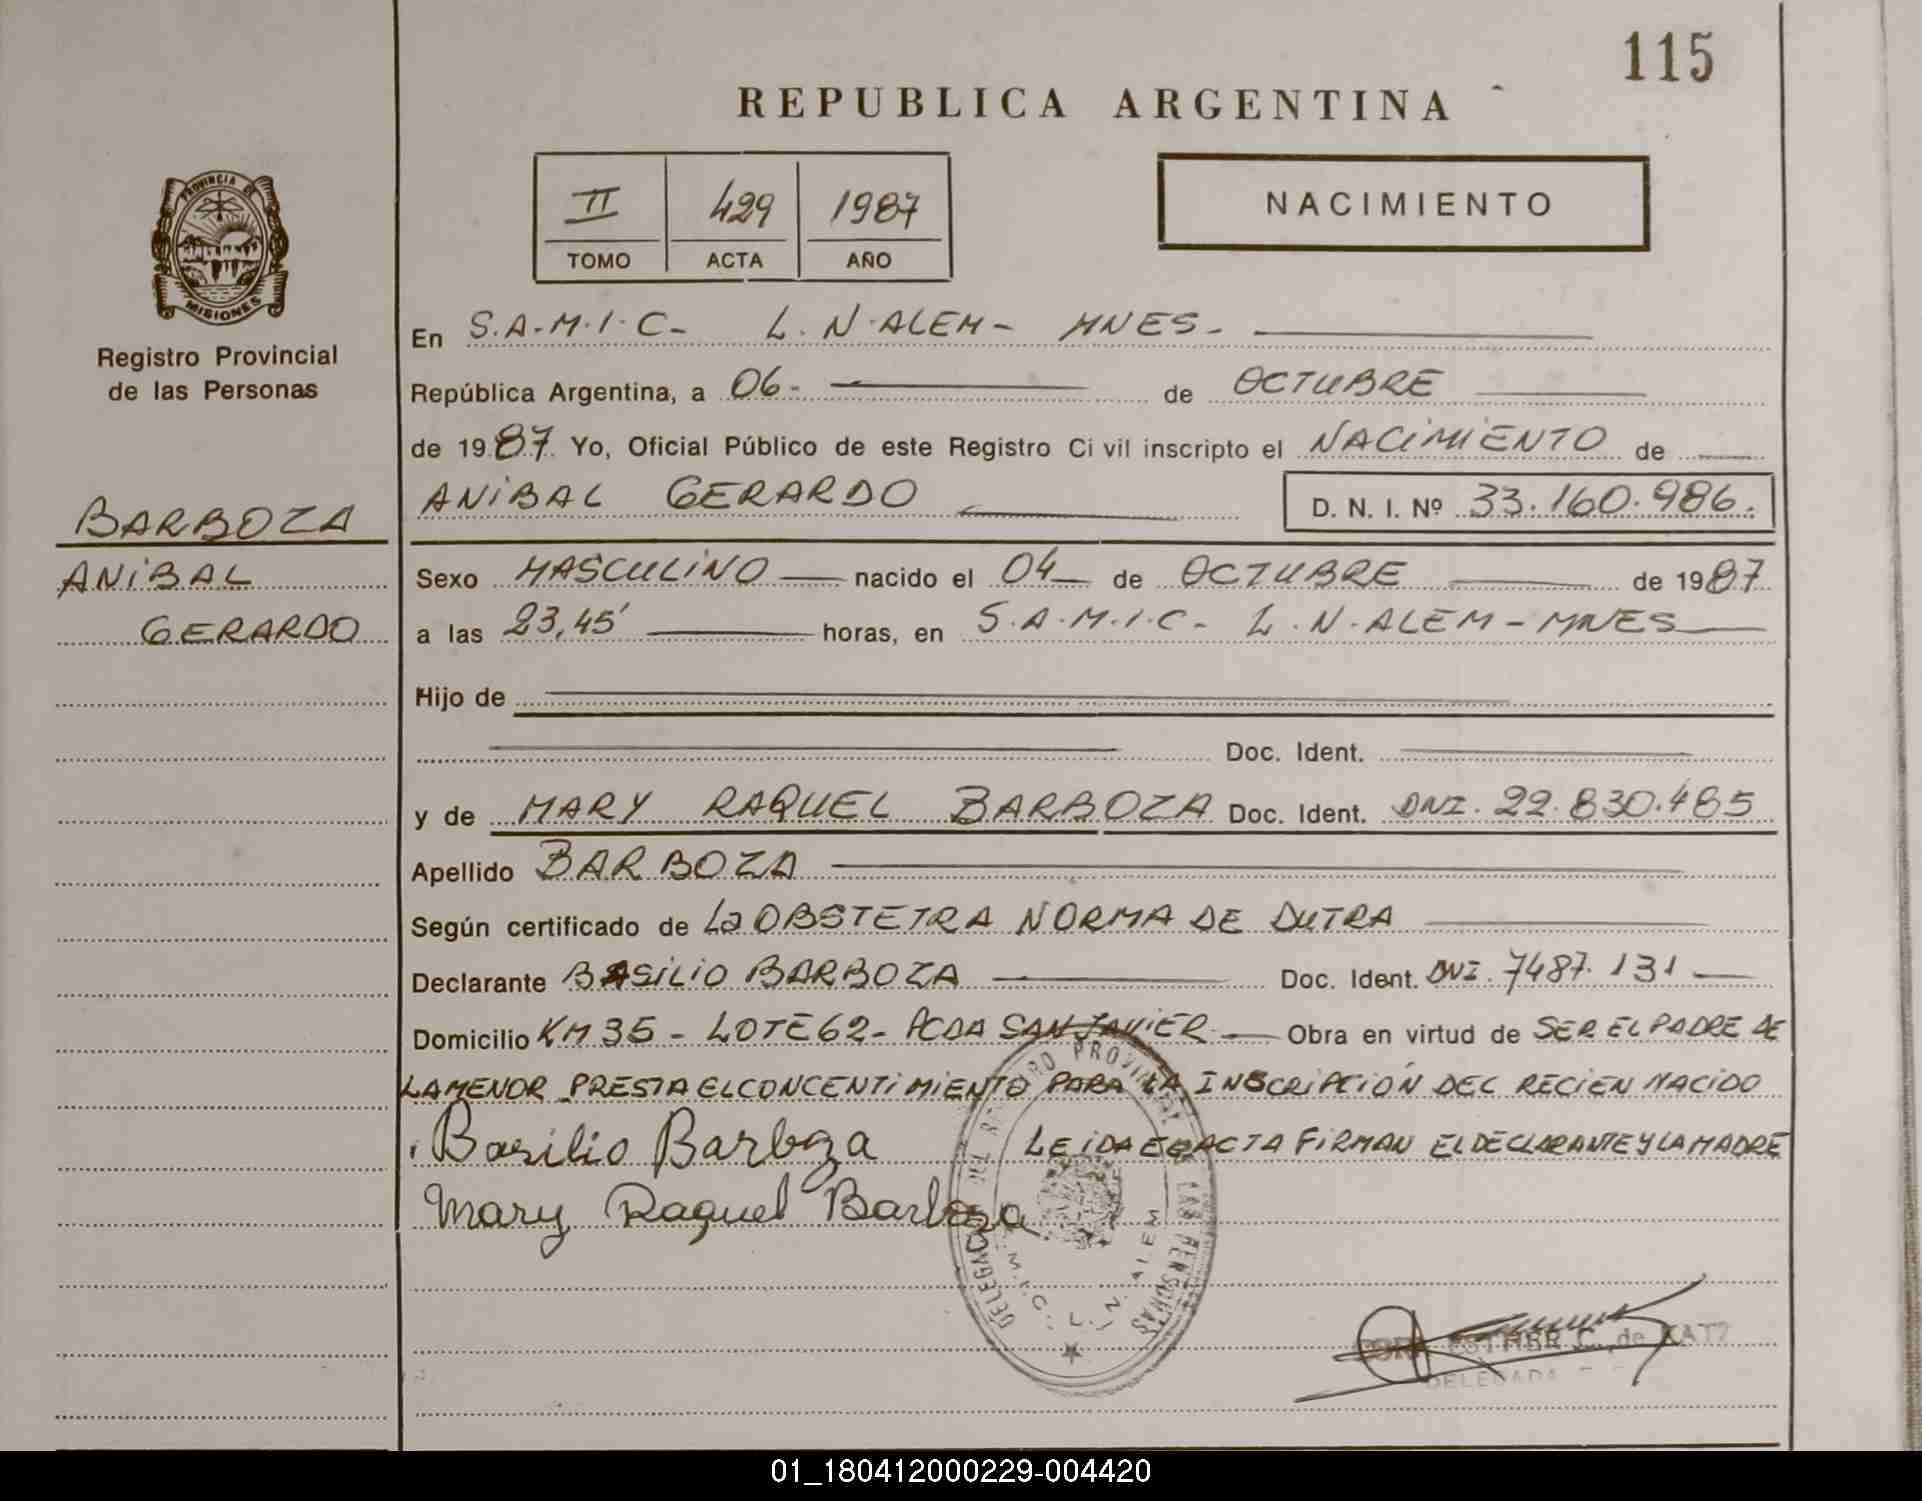 115
REPUBLICA ARGENTINA
PROVINCIA DE
MISIONES
Registro Provincial
de las Personas
II 429 1987
TOMO ACTA AÑO
NACIMIENTO
En S.A.M.I.C- L.N.ALEM- MNES-
República Argentina, a 06- de OCTUBRE
de 1987 Yo, Oficial Público de este Registro Civil inscripto el NACIMIENTO de
ANIBAL GERARDO D. N. I. Nº 33.160.986.
BARBOZA
ANIBAL
GERARDO
Sexo MASCULINO nacido el 04 de OCTUBRE de 1987
a las 23,45' horas, en S.A.M.I.C- L.N.ALEM-MNES
Hijo de
Doc. Ident.
y de MARY RAQUEL BARBOZA Doc. Ident. DNI. 22.830.485
Apellido BARBOZA
Según certificado de La OBSTETRA NORMA DE DUTRA
Declarante BASILIO BARBOZA Doc. Ident. DNI. 7487.131
Domicilio KM 35- LOTE 62- PCDA SAN JAVIER- Obra en virtud de SER EL PADRE DE
LA MENOR PRESTA EL CONCENTIMIENTO PARA LA INSCRIPCIÓN DEL RECIEN NACIDO
Basilio Barboza LEIDA EL ACTA FIRMAN EL DECLARANTE Y LA MADRE
Mary Raquel Barboza
DELEGACION DEL REGISTRO PROVINCIAL DE LAS PERSONAS
S.A.M.I.C. L. N. ALEM
ESTHER C. de KATZ
DELEGADA
01_180412000229-004420